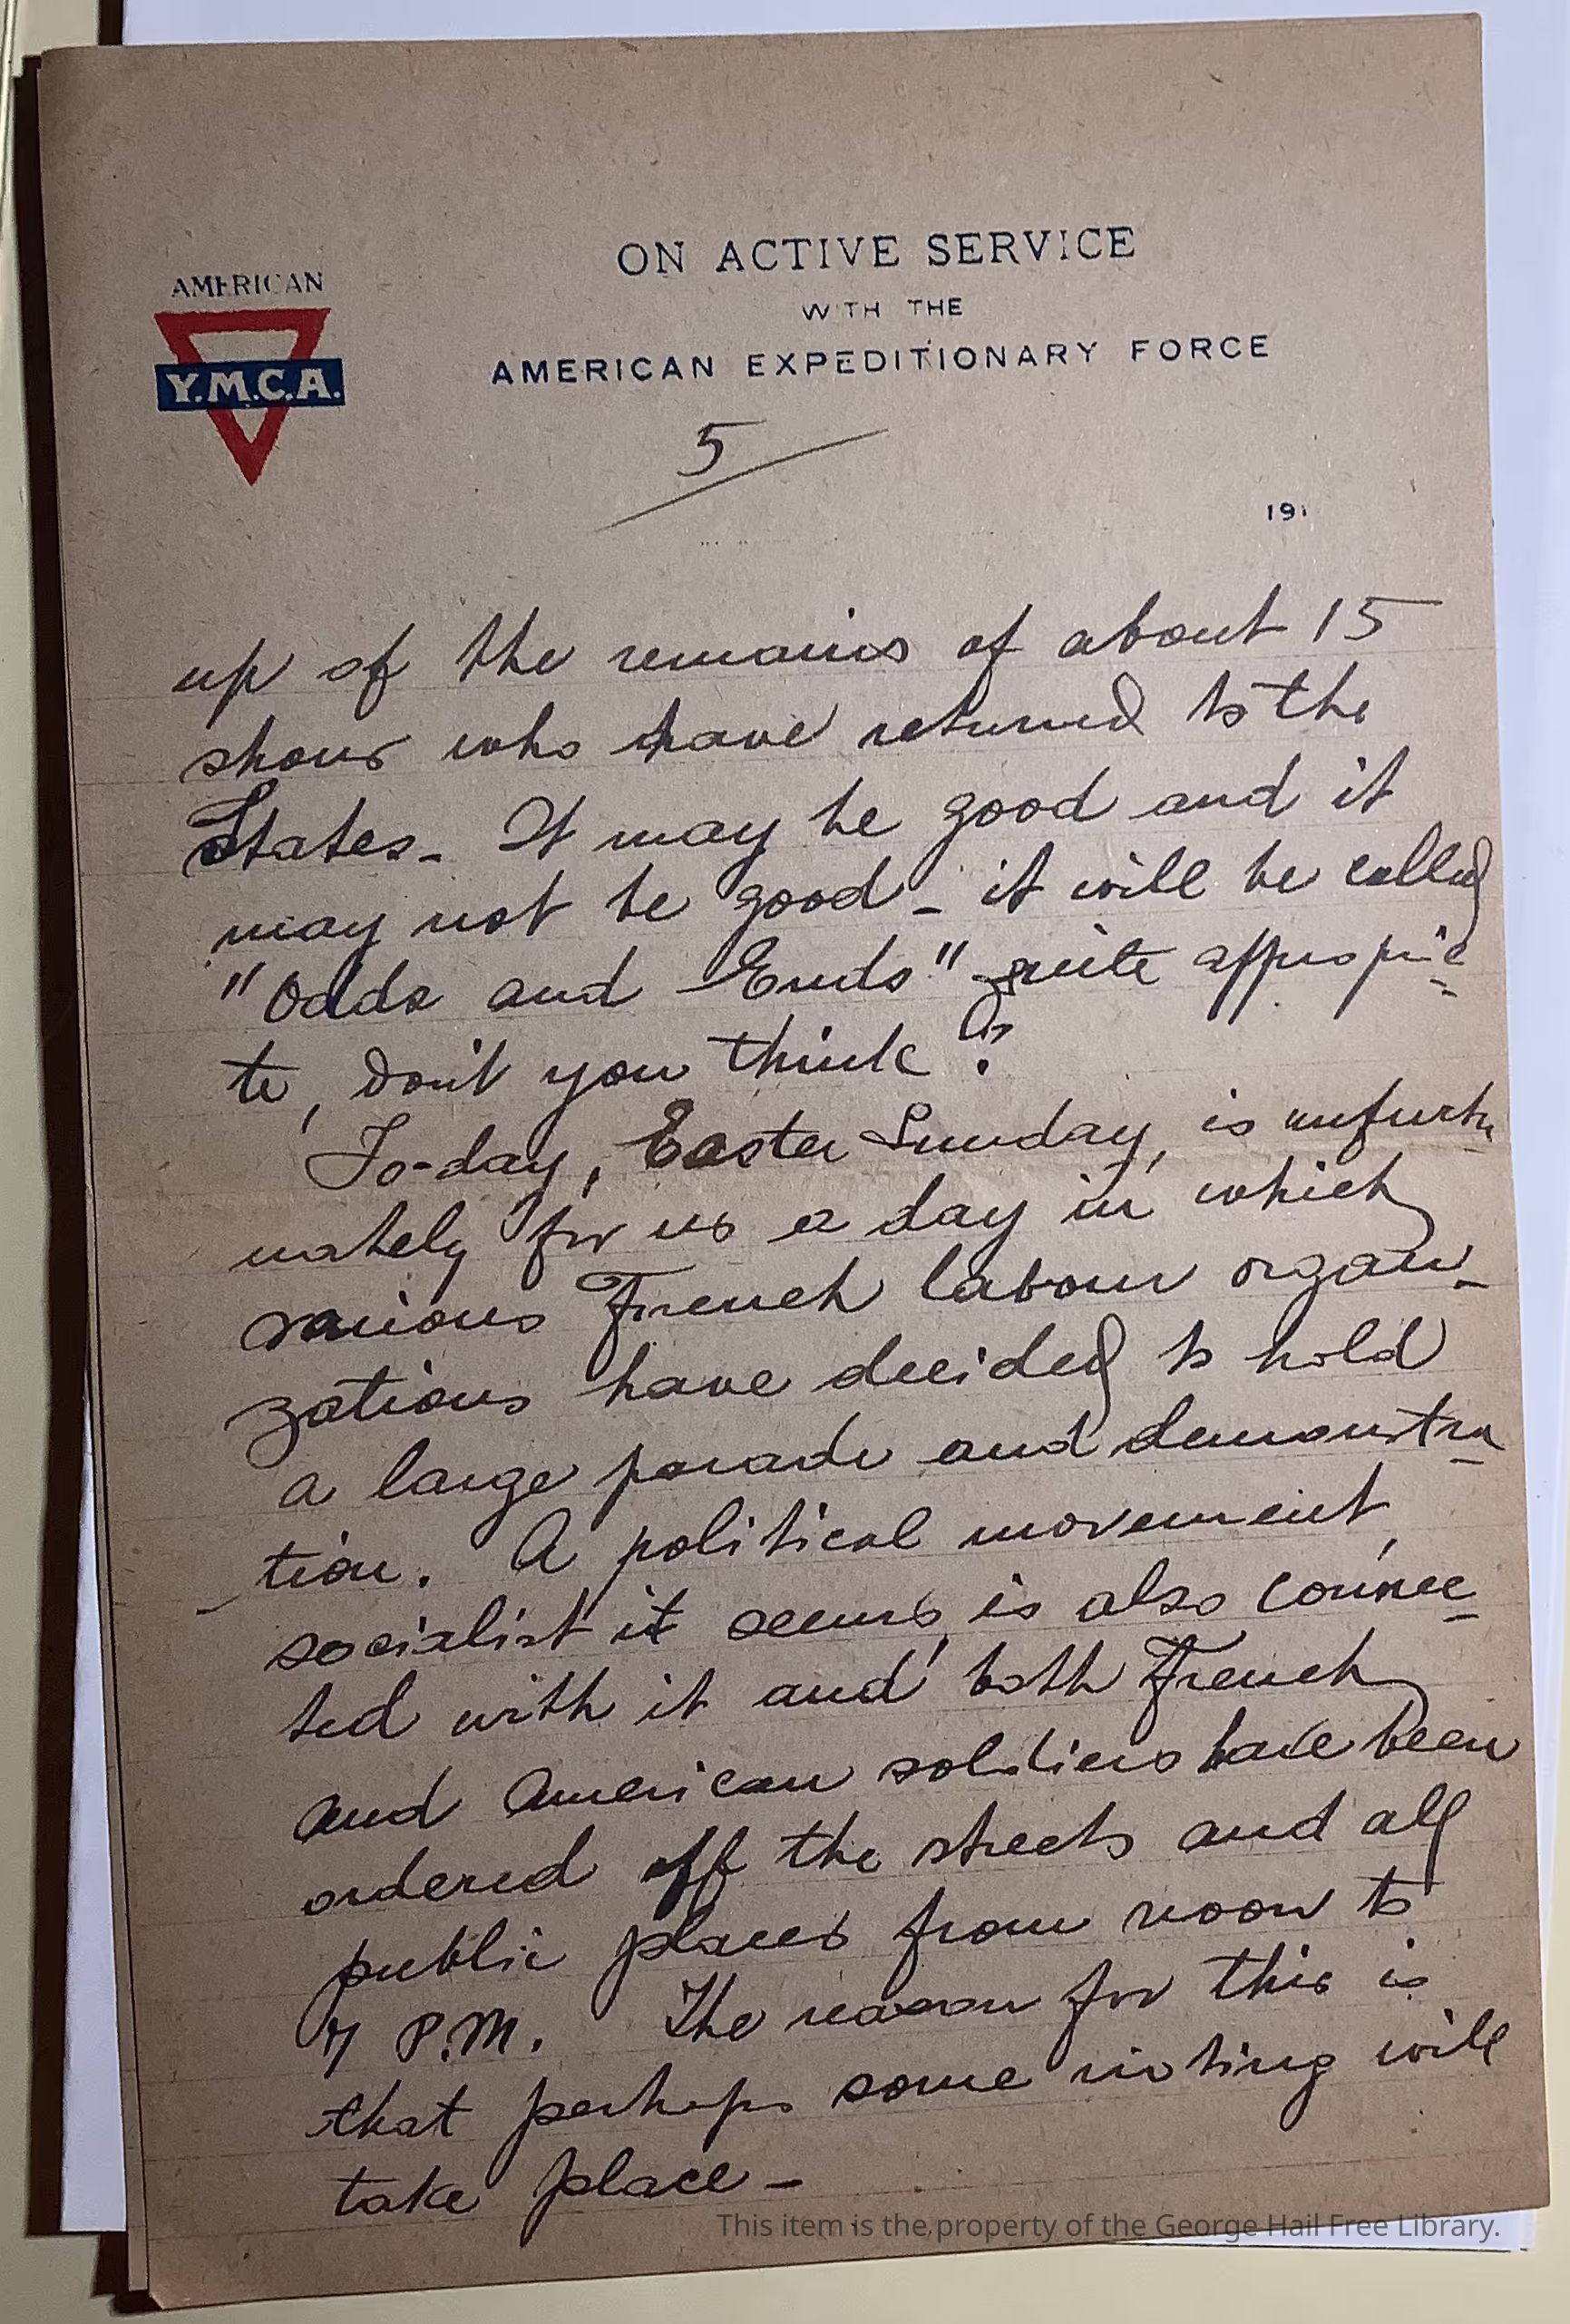 ON ACTIVE SERVICE
WITH THE
AMERICAN EXPEDITIONARY FORCE
AMERICAN
Y.M.C.A.
5
191
up of the remains of about 15
shows who have returned to the
States - It may be good and it
may not be good - it will be called
"Odds and Ends" quite appropria=
te, don't you think?
To-day, Easter Sunday, is unfortu
nately for us a day in which
various French labour organi-
zations have decided to hold
a large parade and demonstra-
tion. A political movement,
socialist it seems, is also connec=
ted with it and both French
and American soldiers have been
ordered off the streets and all
public places from noon to
7 P.M. The reason for this is
that perhaps some rioting will
take place -
This item is the property of the George Hail Free Library.